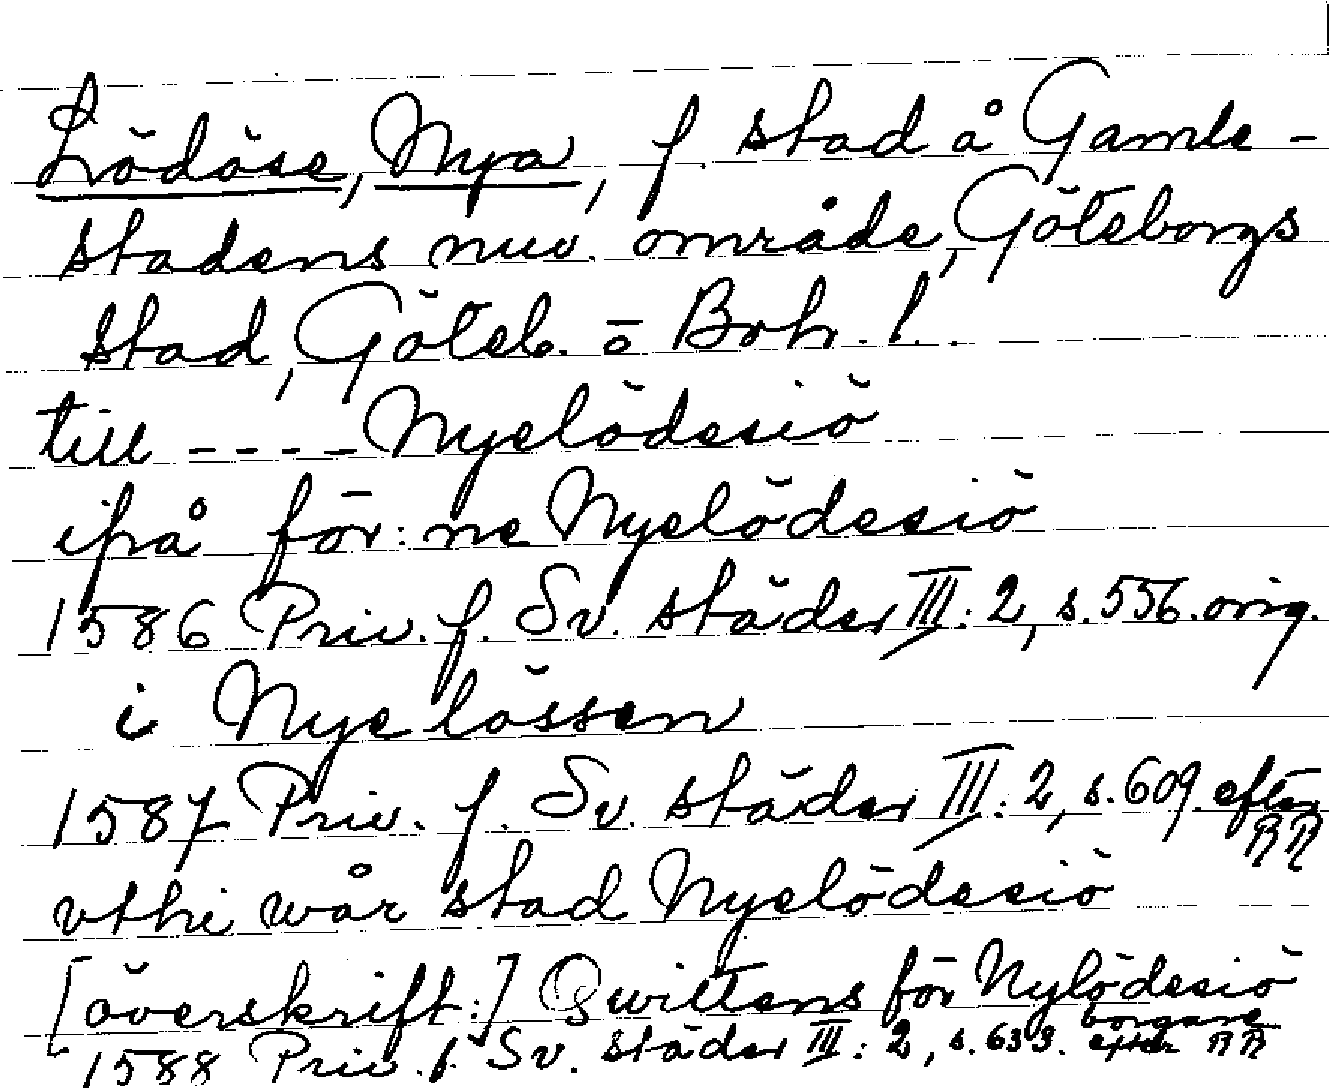 Lödöse, Nya, f. stad å Gamle-
stadens nuv. område, Göteborgs
stad, Göteb. o Boh. l.
till ---- Nyelödesiö
ifrå för:ne Nyelödesiö
1586 Priv. f. Sv. städer III:2, s.556. orig.
i Nyelössen
1587 Priv. f. Sv. städer III:2, s.609 efter
RR
vthi wår stad Nyelödesiö
[överskrift:] Qwittens för Nylödesiö
borgare
1588 Priv. f. Sv. städer III:2, s.633. efter RR